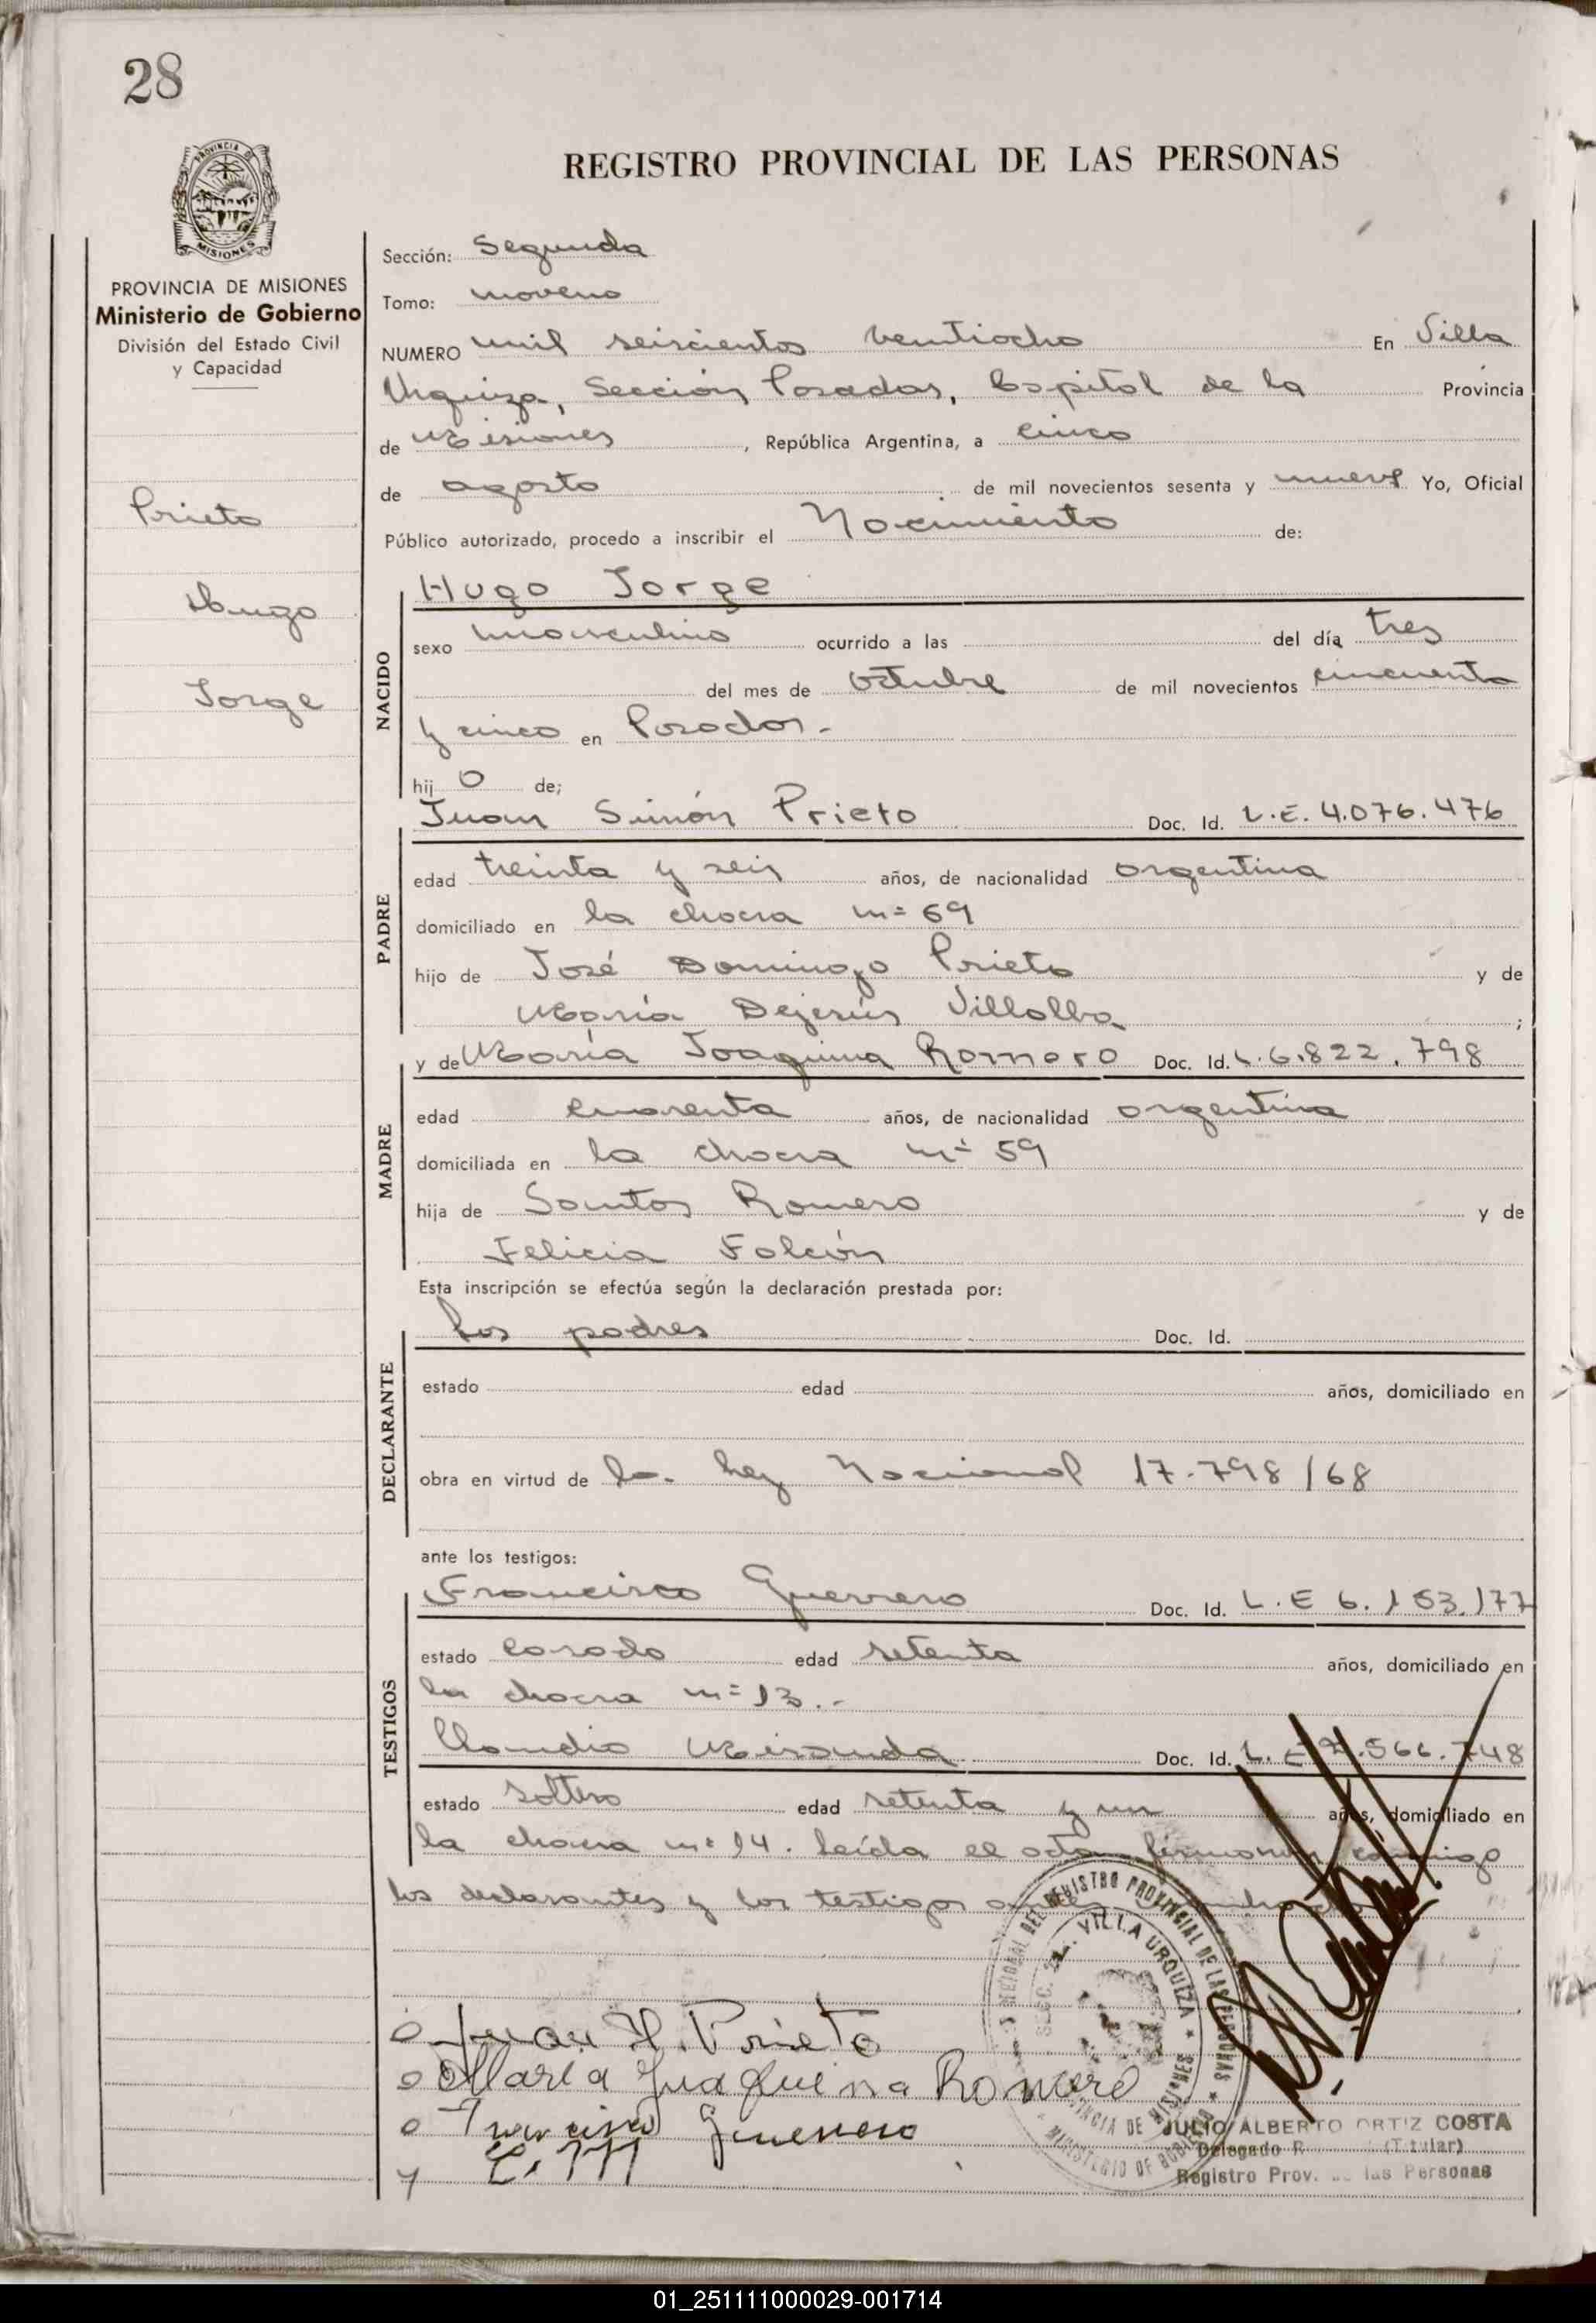 28
PROVINCIA DE
MISIONES
REGISTRO PROVINCIAL DE LAS PERSONAS
PROVINCIA DE MISIONES
Ministerio de Gobierno
División del Estado Civil
y Capacidad
Prieto
Hugo
Jorge
Sección: Segunda
Tomo: noveno
NUMERO mil seiscientos ventiocho En Villa
Urquiza, Sección Posadas, Capital de la Provincia
de Misiones, República Argentina, a cinco
de agosto de mil novecientos sesenta y nueve Yo, Oficial
Público autorizado, procedo a inscribir el Nacimiento de:
NACIDO
Hugo Jorge
sexo masculino ocurrido a las del día tres
del mes de octubre de mil novecientos cincuenta
y cinco en Posadas.-
hijo de;
PADRE
Juan Simón Prieto Doc. Id. L.E. 4.076.476
edad treinta y seis años, de nacionalidad argentina
domiciliado en la chacra nº 69
hijo de José Domingo Prieto y de
María Dejesús Villalba;
MADRE
y de María Joaquina Romero Doc. Id. L. 6.822.798
edad cuarenta años, de nacionalidad argentina
domiciliada en la chacra nº 59
hija de Santos Romero y de
Felicia Falcón
Esta inscripción se efectúa según la declaración prestada por:
DECLARANTE
los padres Doc. Id.
estado edad años, domiciliado en
obra en virtud de la ley Nacional 17.798/68
ante los testigos:
TESTIGOS
Francisco Guerrero Doc. Id. L.E 6.153.177
estado casado edad setenta años, domiciliado en
la chacra nº 13.-
Claudio Miranda Doc. Id. L.E .566.748
estado soltero edad setenta y un años, domiciliado en
la chacra nº 14. Leída el acta firman conmigo
los declarantes y los testigos
REGIONAL DEL REGISTRO PROVINCIAL DE LAS PERSONAS
SECC. 2a. VILLA URQUIZA
MINISTERIO DE GOBIERNO
PROVINCIA DE MISIONES
Juan S. Prieto
Maria Juaquina Romero
Francisco Guerrero
C. M
JULIO ALBERTO ORTIZ COSTA
Delegado R (Titular)
Registro Prov. de las Personas
01_251111000029-001714